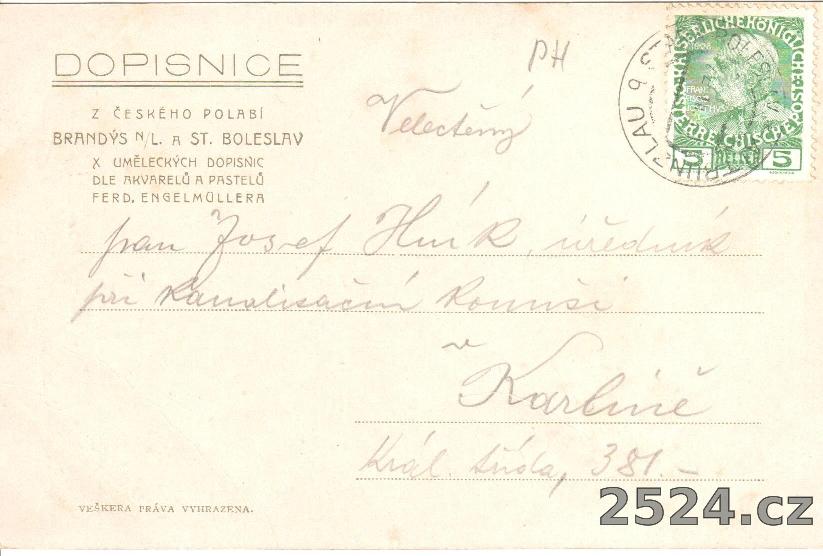 PH
DOPISNICE
Z ČESKÉHO POLABÍ
BRANDÝS N/L. A ST. BOLESLAV
X UMĚLECKÝCH DOPISNIC
DLE AKVARELŮ A PASTELŮ
FERD. ENGELMÜLLERA
Velectěný
pan Josef Hník, úředník
při kanalisační komisi
v
Karlíně
Král. třída, 381.-
VEŠKERA PRÁVA VYHRAZENA.
KAISERLICHE KÖNIGLICHE
ÖSTERREICHISCHE POST
5 HELLER 5
2524.cz